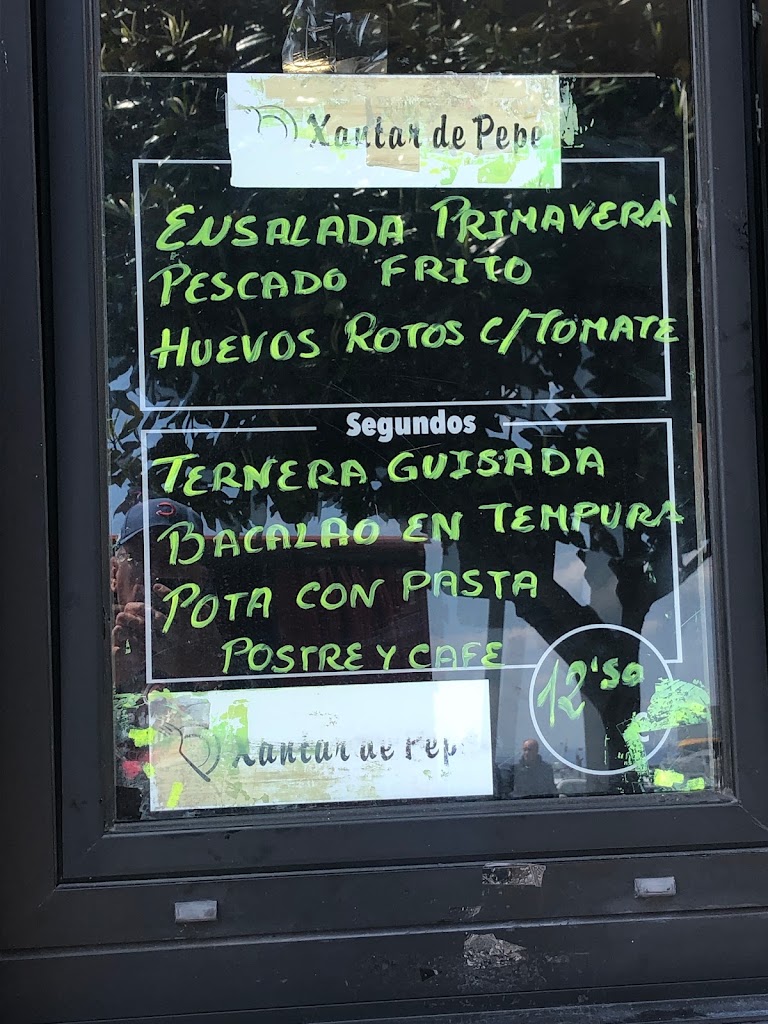 Xantar de Pepe
ENSALADA PRIMAVERA
PESCADO FRITO
HUEVOS ROTOS C/TOMATE
Segundos
TERNERA GUISADA
BACALAO EN TEMPURA
POTA CON PASTA
POSTRE Y CAFE
12'50
Xantar de Pepe